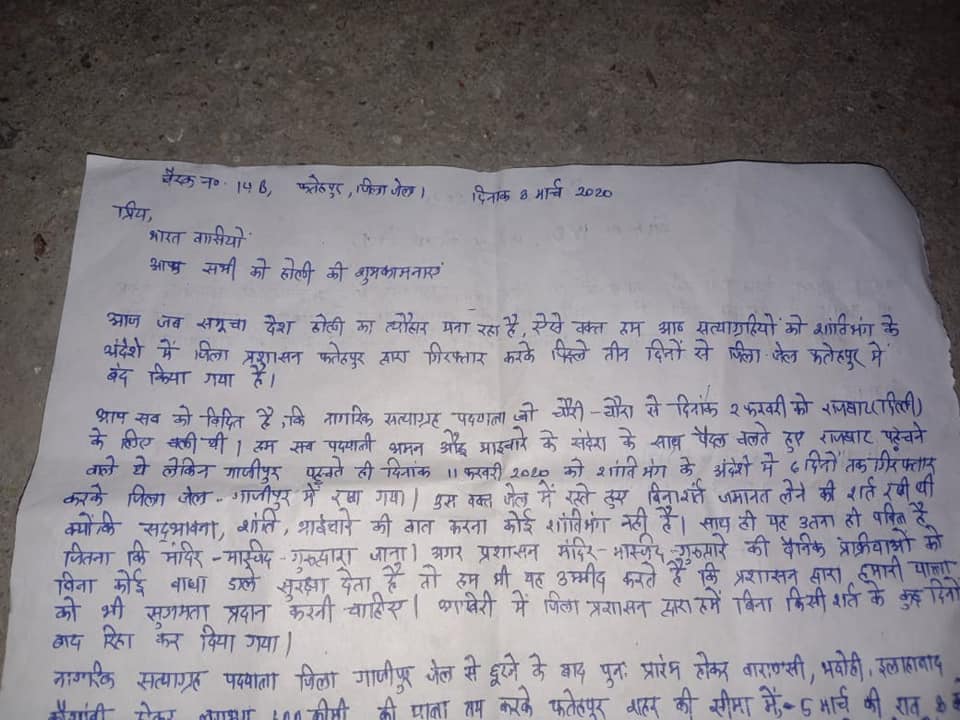 बैरक न० 14 B, फतेहपुर, जिला जेल। दिनांक 8 मार्च 2020
प्रिय,
भारत वासियों
आप सभी को होली की शुभकामनाएं
आज जब समूचा देश होली का त्यौहार मना रहा है, ऐसे वक्त हम आठ सत्याग्रहियों को शांतिभंग के
अंदेशे में जिला प्रशासन फतेहपुर द्वारा गिरफ्तार करके पिछले तीन दिनों से जिला-जेल फतेहपुर में
बंद किया गया है।
आप सब को विदित है, कि नागरिक सत्याग्रह पदयात्रा जो चौरी-चौरा से दिनांक 2 फरवरी को राजघाट (दिल्ली)
के लिए चली थी। हम सब पदयात्री अमन और भाइचारे के संदेश के साथ पैदल चलते हुए राजघाट पहुंचने
वाले थे लेकिन गाजीपुर पहुचते ही दिनांक 11 फरवरी 2020 को शांति भंग के अंदेशे में 6 दिनों तक गिरफ्तार
करके जिला जेल - गाजीपुर में रखा गया। उस वक्त जेल में रहते हुए बिनाशर्त जमानत लेने की शर्त रखी थी
क्योंकि सद्भावना, शांति, भाईचारे की बात करना कोई शांतिभंग नहीं है। साथ ही यह उतना ही पवित्र है
जितना कि मंदिर-मस्जिद-गुरुद्वारा जाना। अगर प्रशासन मंदिर-मस्जिद-गुरुद्वारे की दैनिक प्रक्रियाओं को
बिना कोई बाधा डाले सुरक्षा देता है तो हम भी यह उम्मीद करते हैं कि प्रशासन द्वारा हमारी यात्रा
को भी सुगमता प्रदान करनी चाहिए। आखिरी में जिला प्रशासन द्वारा हमें बिना किसी शर्त के कुछ दिनों
बाद रिहा कर दिया गया।
नागरिक सत्याग्रह पदयात्रा जिला गाजीपुर जेल से छूटने के बाद पुनः प्रारंभ होकर वाराणसी, भदोही, इलाहाबाद
कौशांबी होकर लगभग किमी की यात्रा तय करके फतेहपुर शहर की सीमा में, 5 मार्च की रात 8